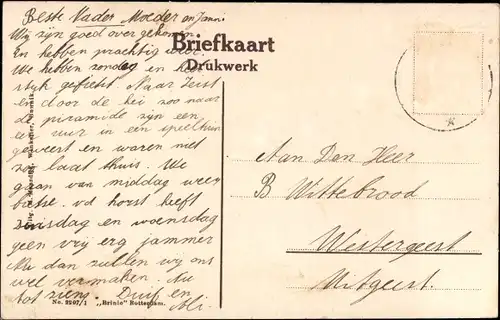 Beste Vader Moeder en Jann:
Wij zijn goed over gekomen
En hebben prachtig weer.
We hebben zondag en heer-
lijk gefietst. Naar Zeist
en door de hei zoo naar
de piramide zijn een
uur in een speeltuin
geweest en waren met
zoo laat thuis. We
gaan van middag weer
fietse. vd horst heeft
dinsdag en woensdag
geen vrij erg jammer
Nu dan zullen wij ons
wel vermaken. Nu
tot ziens. Duif en
Ali.
Briefkaart
Drukwerk
Aan Den Heer
B Wittebrood
Westergeest
Uitgeest.
No. 3207/1 „Brinio" Rotterdam.